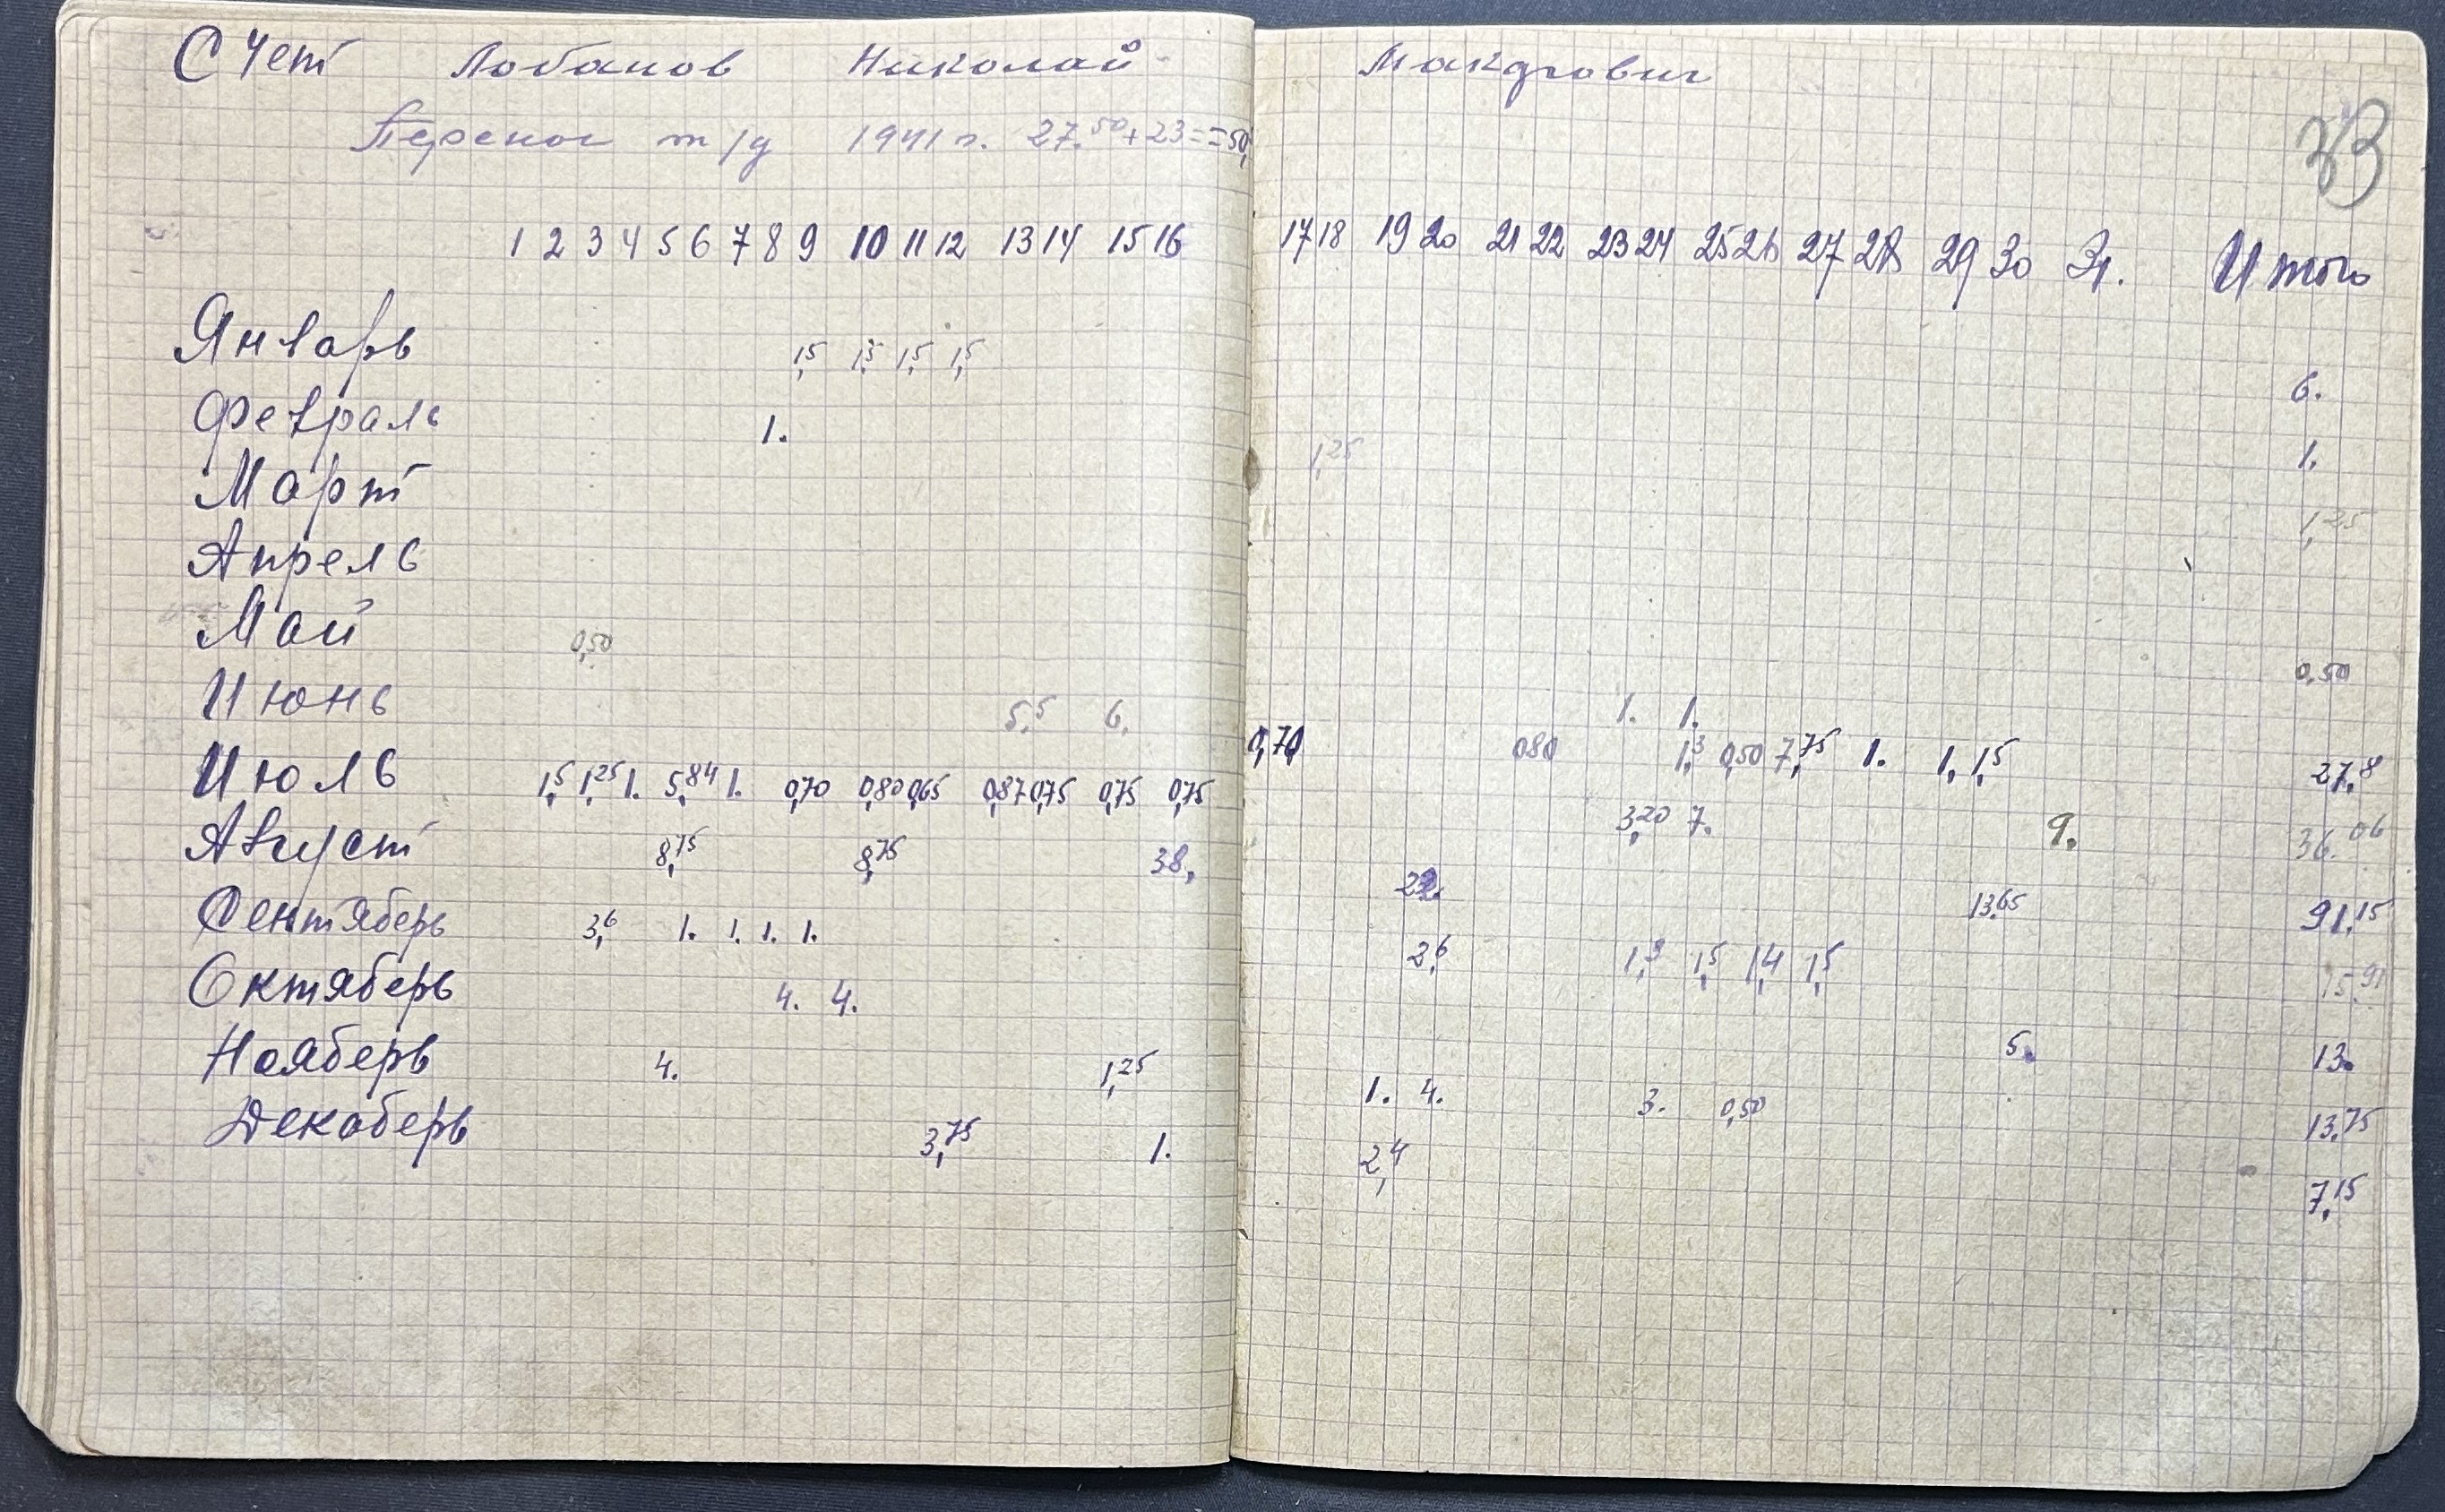 Счет Лобанов Николай
Перенос т/д 1941 г. 27.50 + 23 = = 50,
33
1 2 3 4 5 6 7 8 9 10 11 12 13 14 15 16 17 18 19 20 21 22 23 24 25 26 27 28 29 30 31. Итого
Январь 1,5 1,5 1,5 1,5 6.
Февраль 1. 1.
Март 1,25 1,25
Апрель
Май 0,50 0,50
Июнь 5,5 6. 1. 1. 1,3 0,50 7,75 1. 1, 1,5 27,8
Июль 1,5 1,25 1. 5,84 1. 0,70 0,80 0,65 0,87 0,75 0,75 0,75 0,70 080 3,20 7. 9. 36.06
Август 8,75 8,75 38, 22. 13,65 91,15
Сентяберь 3,6 1. 1. 1. 1. 2,6 1,3 1,5 1,4 1,5 15,91
Октяберь 4. 4. 5. 13.
Нояберь 4. 1,25 1. 4. 3. 0,50 13,75
Декаберь 3,75 1. 2,4 7,15